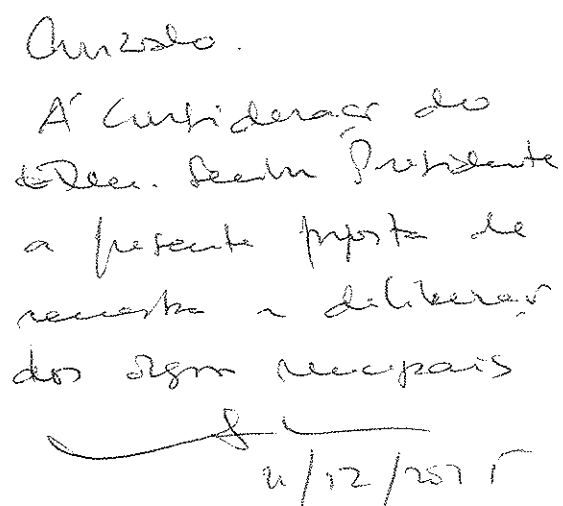 À consideração do
Exmo. Senhor Presidente
a presente proposta de
remessa a deliberação
dos órgãos municipais
/12/2015